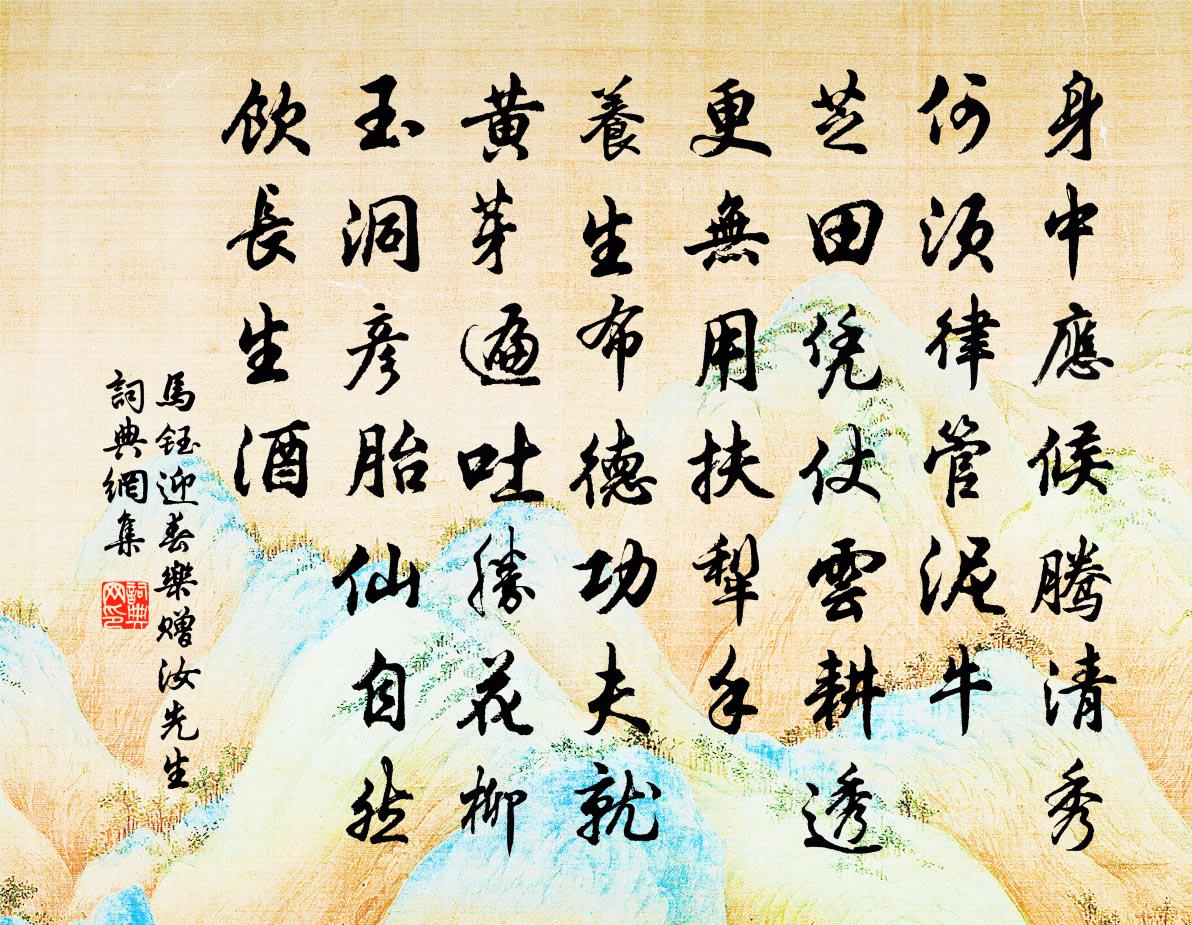 身中應候騰清秀
何須律管泥牛
芝田凭仗雲耕透
更無用扶犁手
養生布德功夫就
黃芽遍吐勝花柳
玉洞彦胎仙自然
飲長生酒
馬鈺迎春樂贈汝先生
詞典網集
詞典
文印